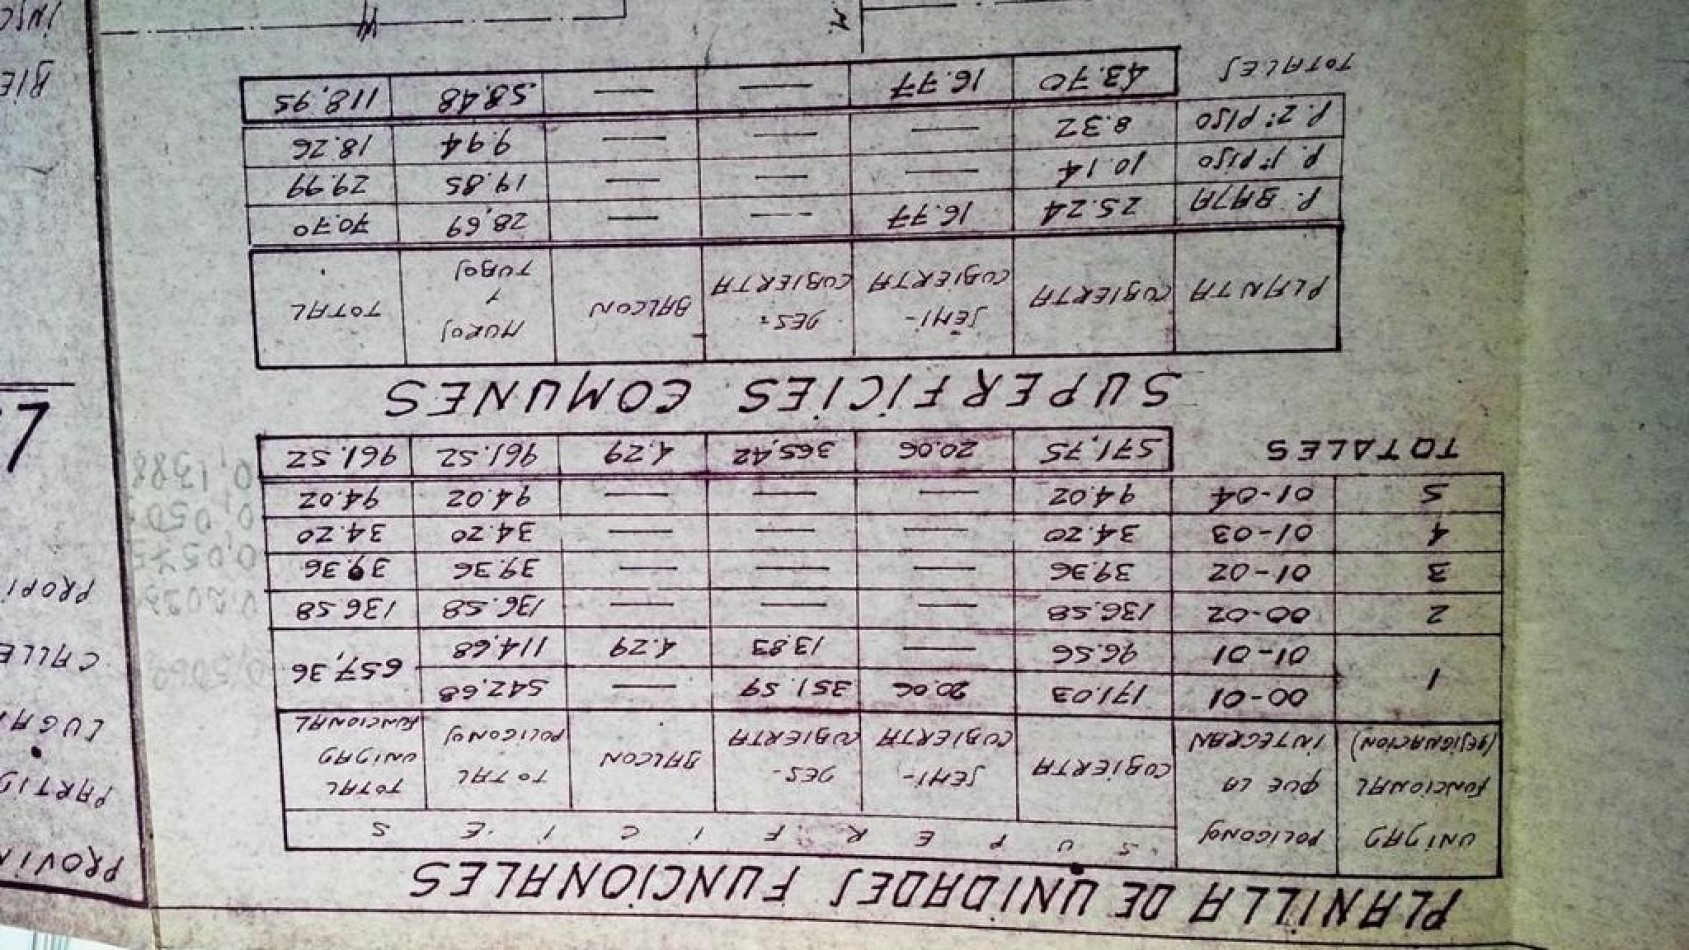 PLANILLA DE UNIDADES FUNCIONALES
UNIDAD FUNCIONAL (DESIGNACION) POLIGONOS QUE LA INTEGRAN SUPERFICIES
CUBIERTA SEMI-CUBIERTA DES-CUBIERTA BALCON TOTAL POLIGONOS TOTAL UNIDAD FUNCIONAL
1 00-01 171.03 20.06 351.59 — 542,68 657,36
01-01 96.56 — 13.83 4.29 114,68
2 00-02 136.58 — — — 136.58 136.58
3 01-02 39.36 — — — 39.36 39.36
4 01-03 34.20 — — — 34.20 34.20
5 01-04 94.02 — — — 94.02 94.02
TOTALES 571,75 20.06 365,42 4.29 961.52 961.52
SUPERFICIES COMUNES
PLANTA CUBIERTA SEMI-CUBIERTA DES-CUBIERTA BALCON MUROS Y TUBOS TOTAL
P. BAJA 25.24 16.77 — — 28,69 70.70
P. 1º PISO 10.14 — — — 19.85 29.99
P. 2º PISO 8.32 — — — 9.94 18.26
TOTALES 43.70 16.77 — — 58.48 118,95
PARTID
LUGA
CALLE
PROPI
BIE
INSC